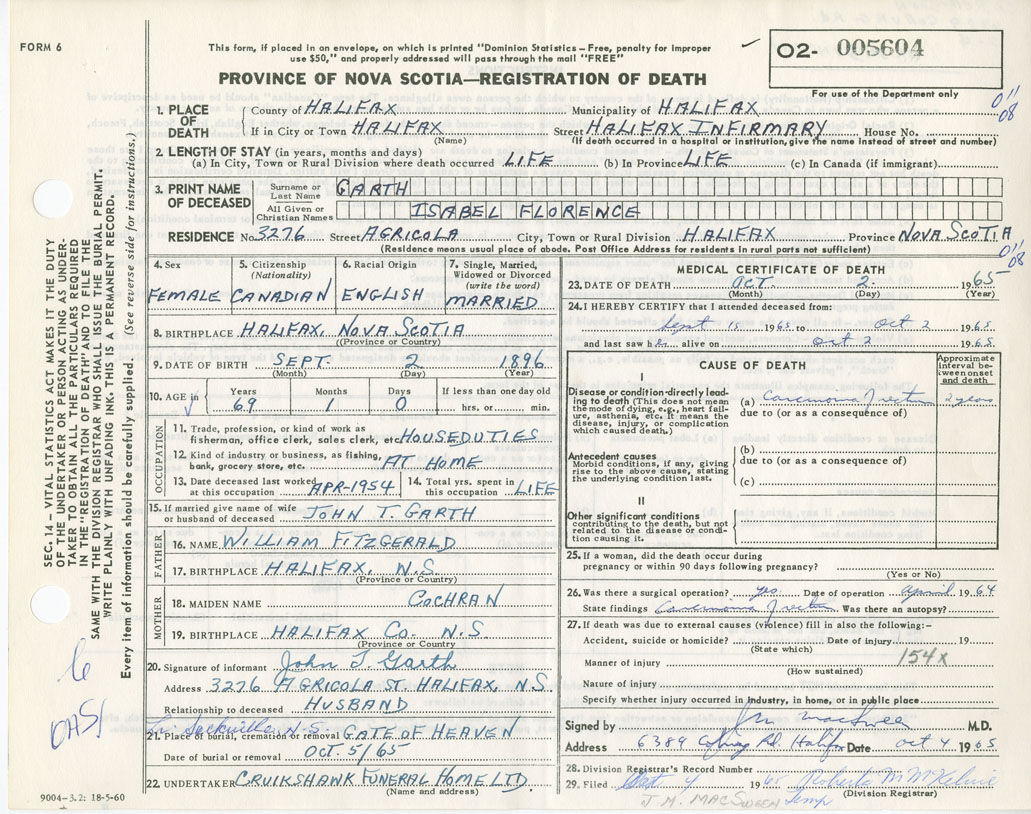 FORM 6
This form, if placed in an envelope, on which is printed "Dominion Statistics—Free, penalty for improper
use $50," and properly addressed will pass through the mail "FREE"
PROVINCE OF NOVA SCOTIA—REGISTRATION OF DEATH
02- 005604
For use of the Department only
011
08
1. PLACE OF DEATH
County of HALIFAX Municipality of HALIFAX
If in City or Town HALIFAX Street HALIFAX INFIRMARY House No.
(Name) (If death occurred in a hospital or institution, give the name instead of street and number)
2. LENGTH OF STAY (in years, months and days)
(a) In City, Town or Rural Division where death occurred LIFE (b) In Province LIFE (c) In Canada (if immigrant)
3. PRINT NAME OF DECEASED
Surname or Last Name GARTH
All Given or Christian Names ISABEL FLORENCE
RESIDENCE No. 3276 Street AGRICOLA City, Town or Rural Division HALIFAX Province NOVA SCOTIA
(Residence means usual place of abode. Post Office Address for residents in rural parts not sufficient)
011
08
4. Sex
FEMALE
5. Citizenship
(Nationality)
CANADIAN
6. Racial Origin
ENGLISH
7. Single, Married, Widowed or Divorced
(write the word)
MARRIED
8. BIRTHPLACE HALIFAX, NOVA SCOTIA
(Province or Country)
9. DATE OF BIRTH SEPT. 2 1896
(Month) (Day) (Year)
10. AGE in
Years Months Days If less than one day old
69 1 0 hrs. or min.
OCCUPATION
11. Trade, profession, or kind of work as
fisherman, office clerk, sales clerk, etc. HOUSEDUTIES
12. Kind of industry or business, as fishing,
bank, grocery store, etc. AT HOME
13. Date deceased last worked
at this occupation APR-1954
14. Total yrs. spent in
this occupation LIFE
15. If married give name of wife
or husband of deceased JOHN T. GARTH
FATHER
16. NAME WILLIAM FITZGERALD
17. BIRTHPLACE HALIFAX, N.S
(Province or Country)
MOTHER
18. MAIDEN NAME COCHRAN
19. BIRTHPLACE HALIFAX CO. N.S
(Province or Country)
20. Signature of informant John T. Garth
Address 3276 AGRICOLA ST. HALIFAX, N.S.
Relationship to deceased HUSBAND
Sackville N.S.
21. Place of burial, cremation or removal GATE OF HEAVEN
Date of burial or removal OCT. 5/65
22. UNDERTAKER CRUIKSHAWK FUNERAL HOME LTD.
(Name and address)
MEDICAL CERTIFICATE OF DEATH
23. DATE OF DEATH OCT. 2 1965
(Month) (Day) (Year)
24. I HEREBY CERTIFY that I attended deceased from:
Sept 15 1965 to Oct 2 1965
and last saw her alive on Oct 2 1965
CAUSE OF DEATH
Approximate interval between onset and death
I
Disease or condition directly leading to death (This does not mean
the mode of dying, e.g., heart failure, asthenia, etc. It means the
disease, injury, or complication which caused death.)
(a) Carcinoma of rectum 2 years
due to (or as a consequence of)
Antecedent causes
Morbid conditions, if any, giving
rise to the above cause, stating
the underlying condition last.
(b)
due to (or as a consequence of)
(c)
II
Other significant conditions
contributing to the death, but not
related to the disease or condition
causing it.
25. If a woman, did the death occur during
pregnancy or within 90 days following pregnancy?
(Yes or No)
26. Was there a surgical operation? yes Date of operation April 1964
State findings Carcinoma of rectum Was there an autopsy?
27. If death was due to external causes (violence) fill in also the following:—
Accident, suicide or homicide? Date of injury 19
(State which)
Manner of injury 154X
(How sustained)
Nature of injury
Specify whether injury occurred in industry, in home, or in public place
Signed by J M MacSween M.D.
Address 6389 Coburg Rd. Halifax Date Oct 4 1965
28. Division Registrar's Record Number
29. Filed Oct 4 1965 Roberta M McKelvie
(Division Registrar)
J. M. MACSWEEN Temp
SEC. 14 – VITAL STATISTICS ACT MAKES IT THE DUTY
OF THE UNDERTAKER OR PERSON ACTING AS UNDER-
TAKER TO OBTAIN ALL THE PARTICULARS REQUIRED
IN THE "REGISTRATION OF DEATH" AND TO FILE THE
SAME WITH THE DIVISION REGISTRAR WHO SHALL ISSUE THE BURIAL PERMIT.
WRITE PLAINLY WITH UNFADING INK. THIS IS A PERMANENT RECORD.
Every item of information should be carefully supplied. (See reverse side for instructions.)
9004-3.2: 18-5-60